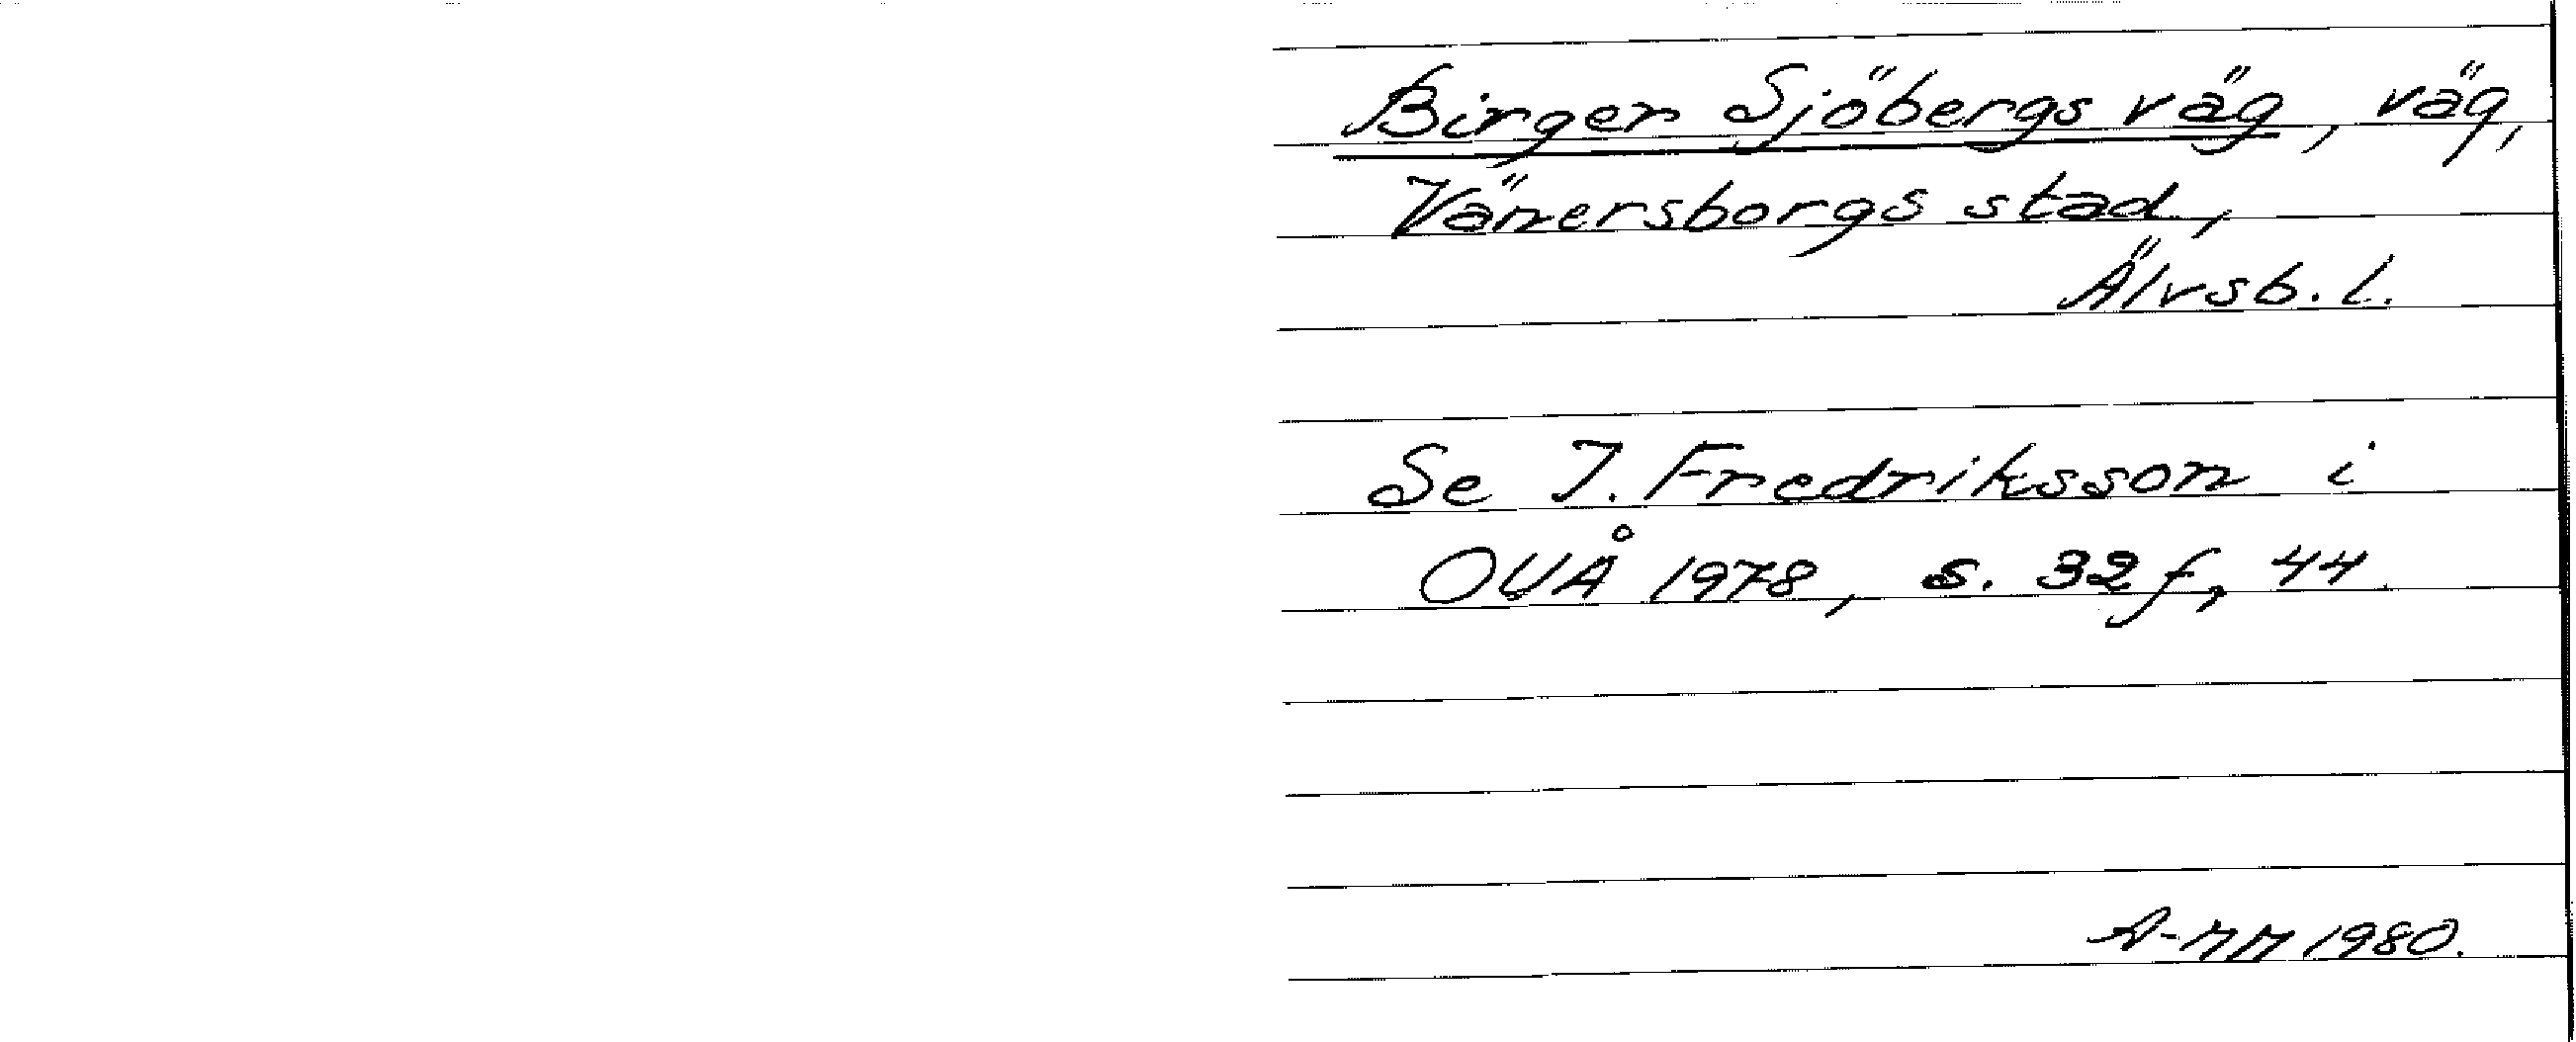 Birger Sjöbergs väg, väg,
Vänersborgs stad,
Älvsb. l.
Se I. Fredriksson i
OUÅ 1978, s. 32 f, 44.
A-MM 1980.